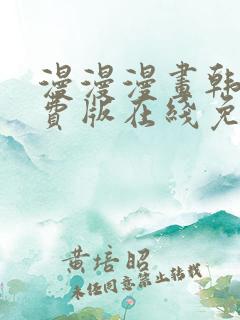 漫漫漫畫韩
费版在线免
黄培昭
未经同意禁止转载